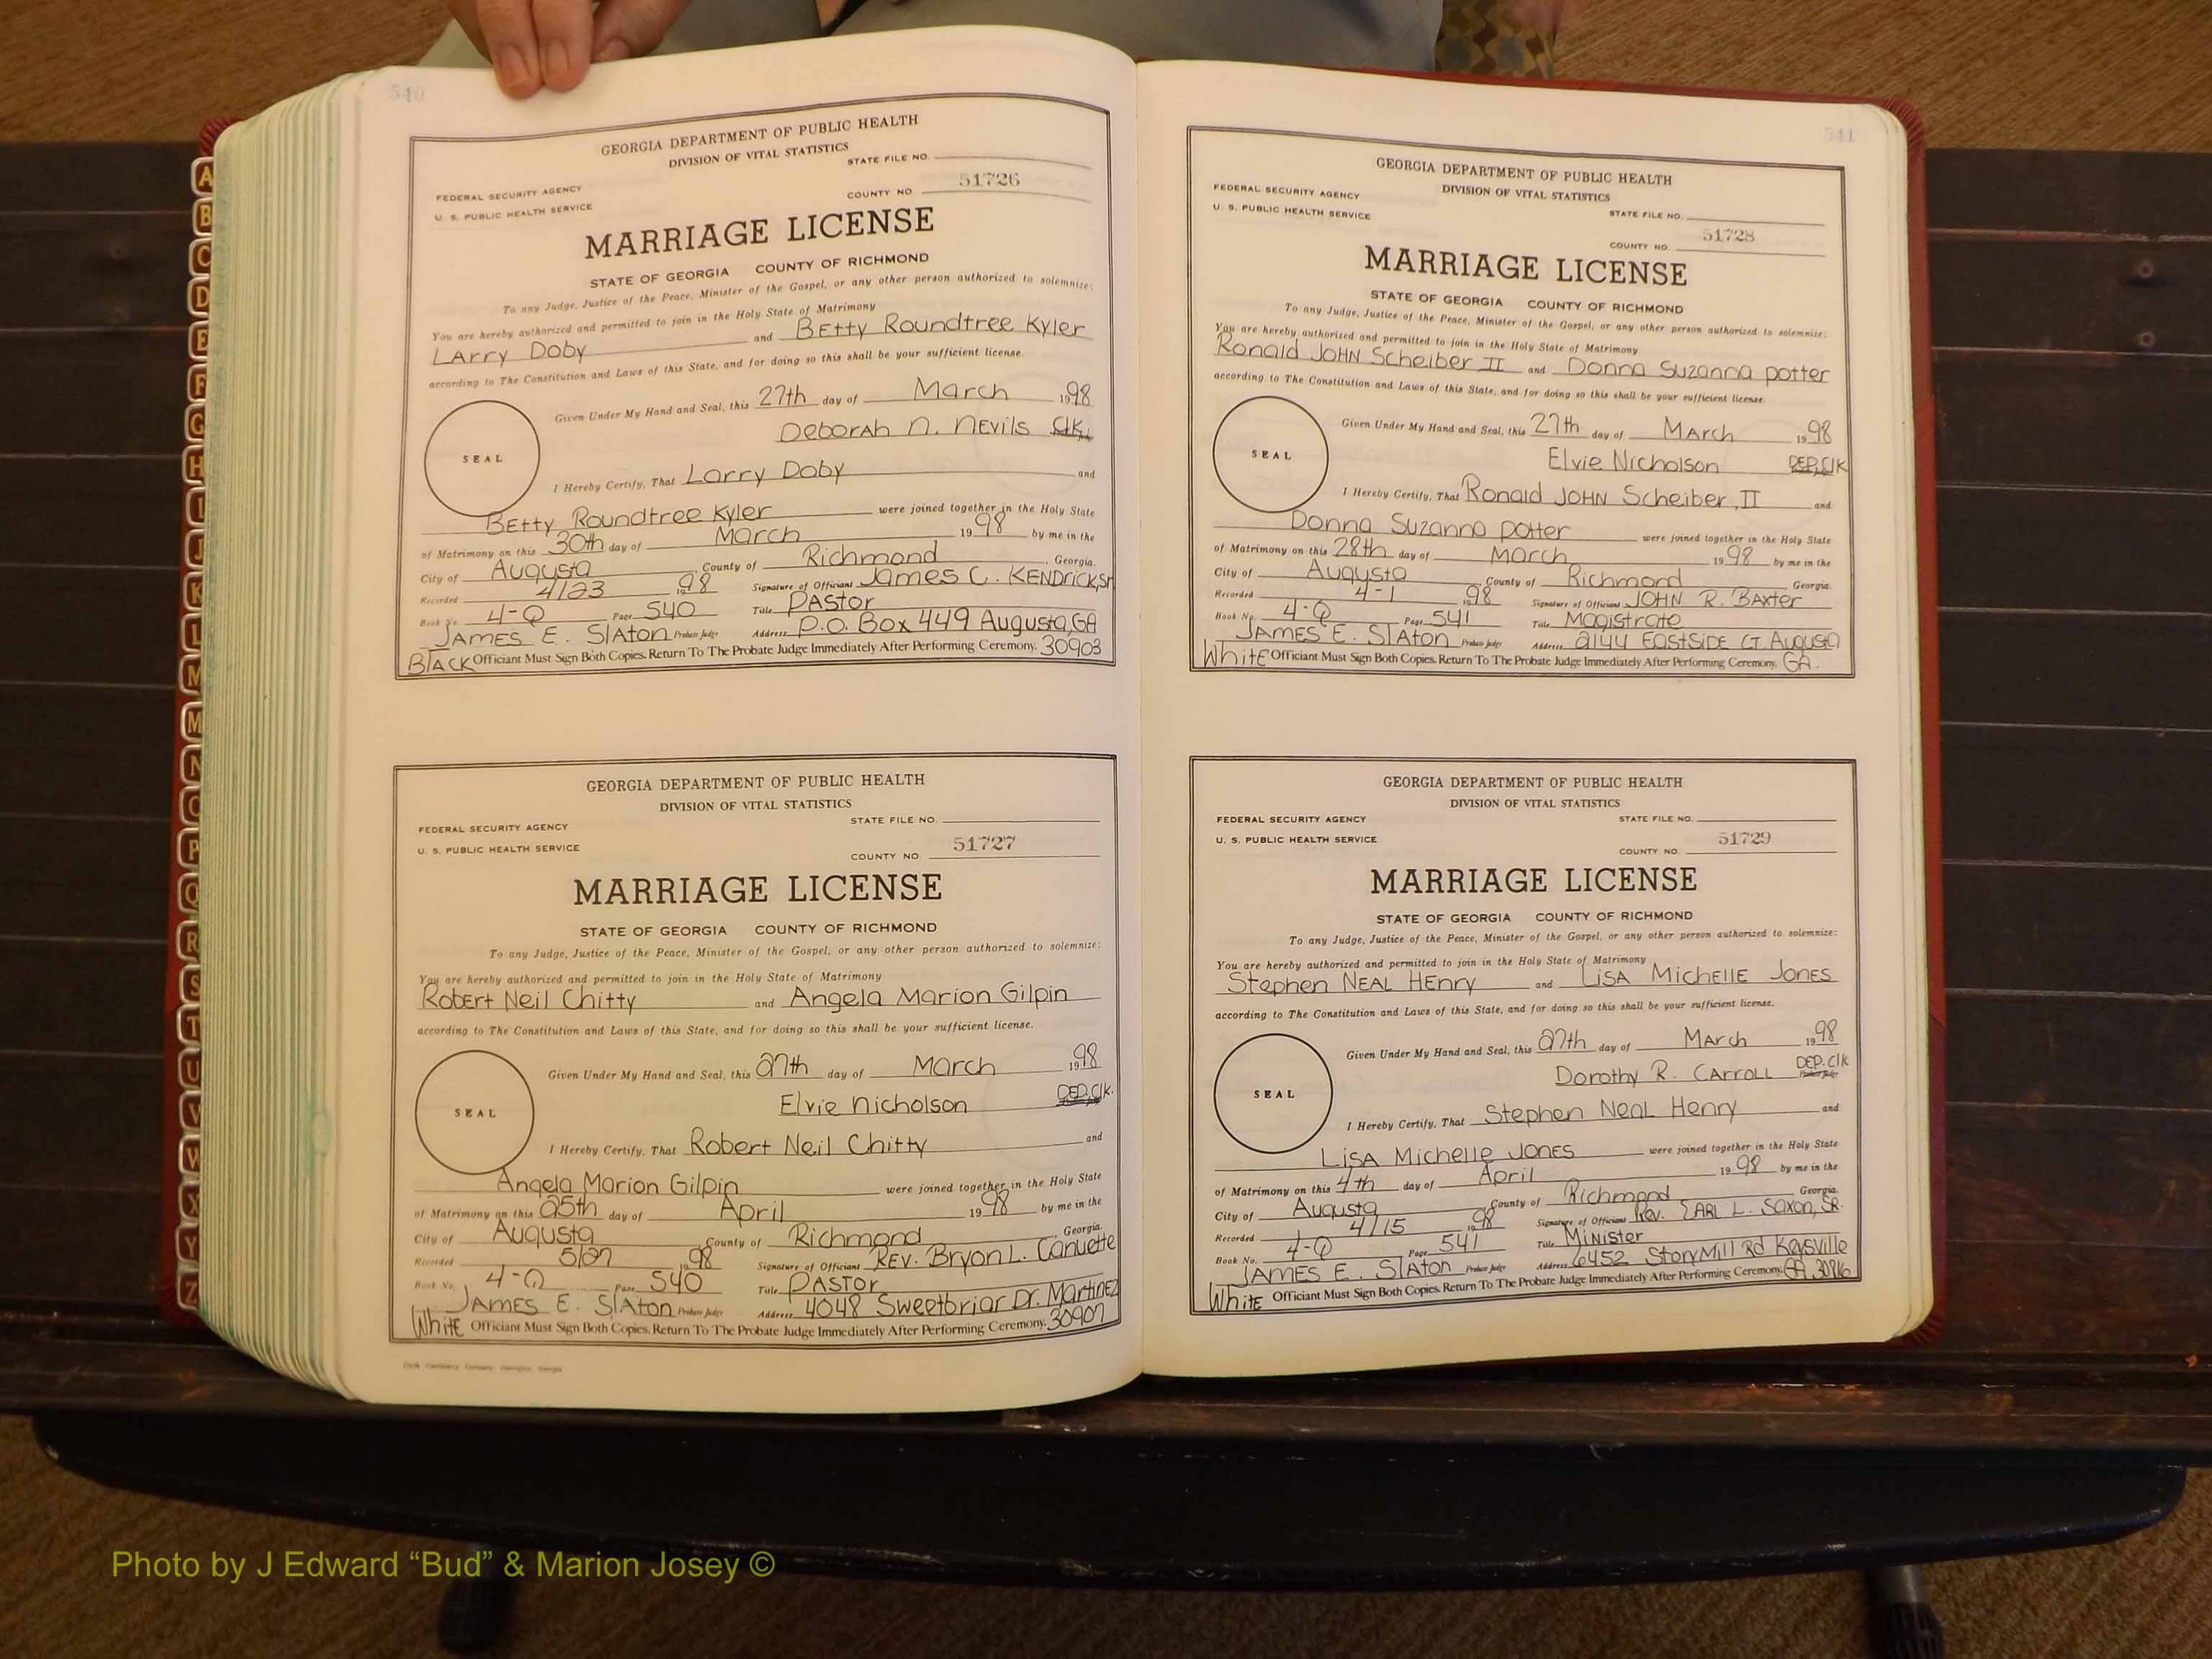 540
GEORGIA DEPARTMENT OF PUBLIC HEALTH
DIVISION OF VITAL STATISTICS
STATE FILE NO.
FEDERAL SECURITY AGENCY
U. S. PUBLIC HEALTH SERVICE
COUNTY NO. 51726
MARRIAGE LICENSE
STATE OF GEORGIA COUNTY OF RICHMOND
To any Judge, Justice of the Peace, Minister of the Gospel, or any other person authorized to solemnize:
You are hereby authorized and permitted to join in the Holy State of Matrimony
LArry Doby and BEtty Roundtree Kyler
according to The Constitution and Laws of this State, and for doing so this shall be your sufficient license.
Given Under My Hand and Seal, this 27th day of March 1998
Deborah n. nevils Clk.
SEAL
I Hereby Certify, That Larry Doby and
BEtty Roundtree Kyler were joined together in the Holy State
of Matrimony on this 30th day of March 1998 by me in the
City of Augusta, County of Richmond, Georgia.
Recorded 4/23 1998 Signature of Officiant James C. KENDrick, Sr
Book No. 4-Q Page 540 Title PAStor
JAMES E. SlAton Probate Judge Address P.O. Box 449 Augusta, GA
BlACK Officiant Must Sign Both Copies. Return To The Probate Judge Immediately After Performing Ceremony. 30903
GEORGIA DEPARTMENT OF PUBLIC HEALTH
DIVISION OF VITAL STATISTICS
STATE FILE NO.
FEDERAL SECURITY AGENCY
U. S. PUBLIC HEALTH SERVICE
COUNTY NO. 51727
MARRIAGE LICENSE
STATE OF GEORGIA COUNTY OF RICHMOND
To any Judge, Justice of the Peace, Minister of the Gospel, or any other person authorized to solemnize:
You are hereby authorized and permitted to join in the Holy State of Matrimony
Robert Neil Chitty and Angela Marion Gilpin
according to The Constitution and Laws of this State, and for doing so this shall be your sufficient license.
Given Under My Hand and Seal, this 27th day of March 1998
Elvie Nicholson DEP. Clk.
SEAL
I Hereby Certify, That Robert Neil Chitty and
Angela Marion Gilpin were joined together in the Holy State
of Matrimony on this 25th day of April 1998 by me in the
City of Augusta, County of Richmond, Georgia.
Recorded 5/27 1998 Signature of Officiant REV. Bryon L. Canuette
Book No. 4-Q Page 540 Title PAStor
JAMES E. SlAton Probate Judge Address 4048 Sweetbriar Dr. Martinez
White Officiant Must Sign Both Copies. Return To The Probate Judge Immediately After Performing Ceremony. 30907
541
GEORGIA DEPARTMENT OF PUBLIC HEALTH
DIVISION OF VITAL STATISTICS
FEDERAL SECURITY AGENCY
U. S. PUBLIC HEALTH SERVICE
STATE FILE NO.
COUNTY NO. 51728
MARRIAGE LICENSE
STATE OF GEORGIA COUNTY OF RICHMOND
To any Judge, Justice of the Peace, Minister of the Gospel, or any other person authorized to solemnize:
You are hereby authorized and permitted to join in the Holy State of Matrimony
Ronald JOHN Scheiber II and Donna Suzanna potter
according to The Constitution and Laws of this State, and for doing so this shall be your sufficient license.
Given Under My Hand and Seal, this 27th day of MArch 1998
Elvie Nicholson DEP. Clk
SEAL
I Hereby Certify, That Ronald JOHN Scheiber, II and
Donna Suzanna potter were joined together in the Holy State
of Matrimony on this 28th day of March 1998 by me in the
City of Augusta, County of Richmond Georgia.
Recorded 4-1 1998 Signature of Officiant JOHN R. BAxter
Book No. 4-Q Page 541 Title Magistrate
JAMES E. SlAton Probate Judge Address 2144 EastSIDE CT. Augusta
White Officiant Must Sign Both Copies. Return To The Probate Judge Immediately After Performing Ceremony. GA.
GEORGIA DEPARTMENT OF PUBLIC HEALTH
DIVISION OF VITAL STATISTICS
FEDERAL SECURITY AGENCY
STATE FILE NO.
U. S. PUBLIC HEALTH SERVICE
COUNTY NO. 51729
MARRIAGE LICENSE
STATE OF GEORGIA COUNTY OF RICHMOND
To any Judge, Justice of the Peace, Minister of the Gospel, or any other person authorized to solemnize:
You are hereby authorized and permitted to join in the Holy State of Matrimony
Stephen NEAL HEnry and LiSA MichellE JonES
according to The Constitution and Laws of this State, and for doing so this shall be your sufficient license.
Given Under My Hand and Seal, this 27th day of MArch 1998
Dorothy R. CArroLL DEP. Clk
SEAL
I Hereby Certify, That Stephen NeaL Henry and
LiSA Michelle JonES were joined together in the Holy State
of Matrimony on this 4th day of April 1998 by me in the
City of Augusta, County of Richmond Georgia.
Recorded 4/15 1998 Signature of Officiant Rev. EARL L. Saxon, SR.
Book No. 4-Q Page 541 Title Minister
JAMES E. SlAton Probate Judge Address 6452 Story Mill Rd Keysville
White Officiant Must Sign Both Copies. Return To The Probate Judge Immediately After Performing Ceremony. GA 30816
A
B
C
D
E
F
G
H
I
J
K
L
M
M
N
O
P
Q
R
S
T
U
V
W
X
Y
Z
Photo by J Edward “Bud” & Marion Josey ©